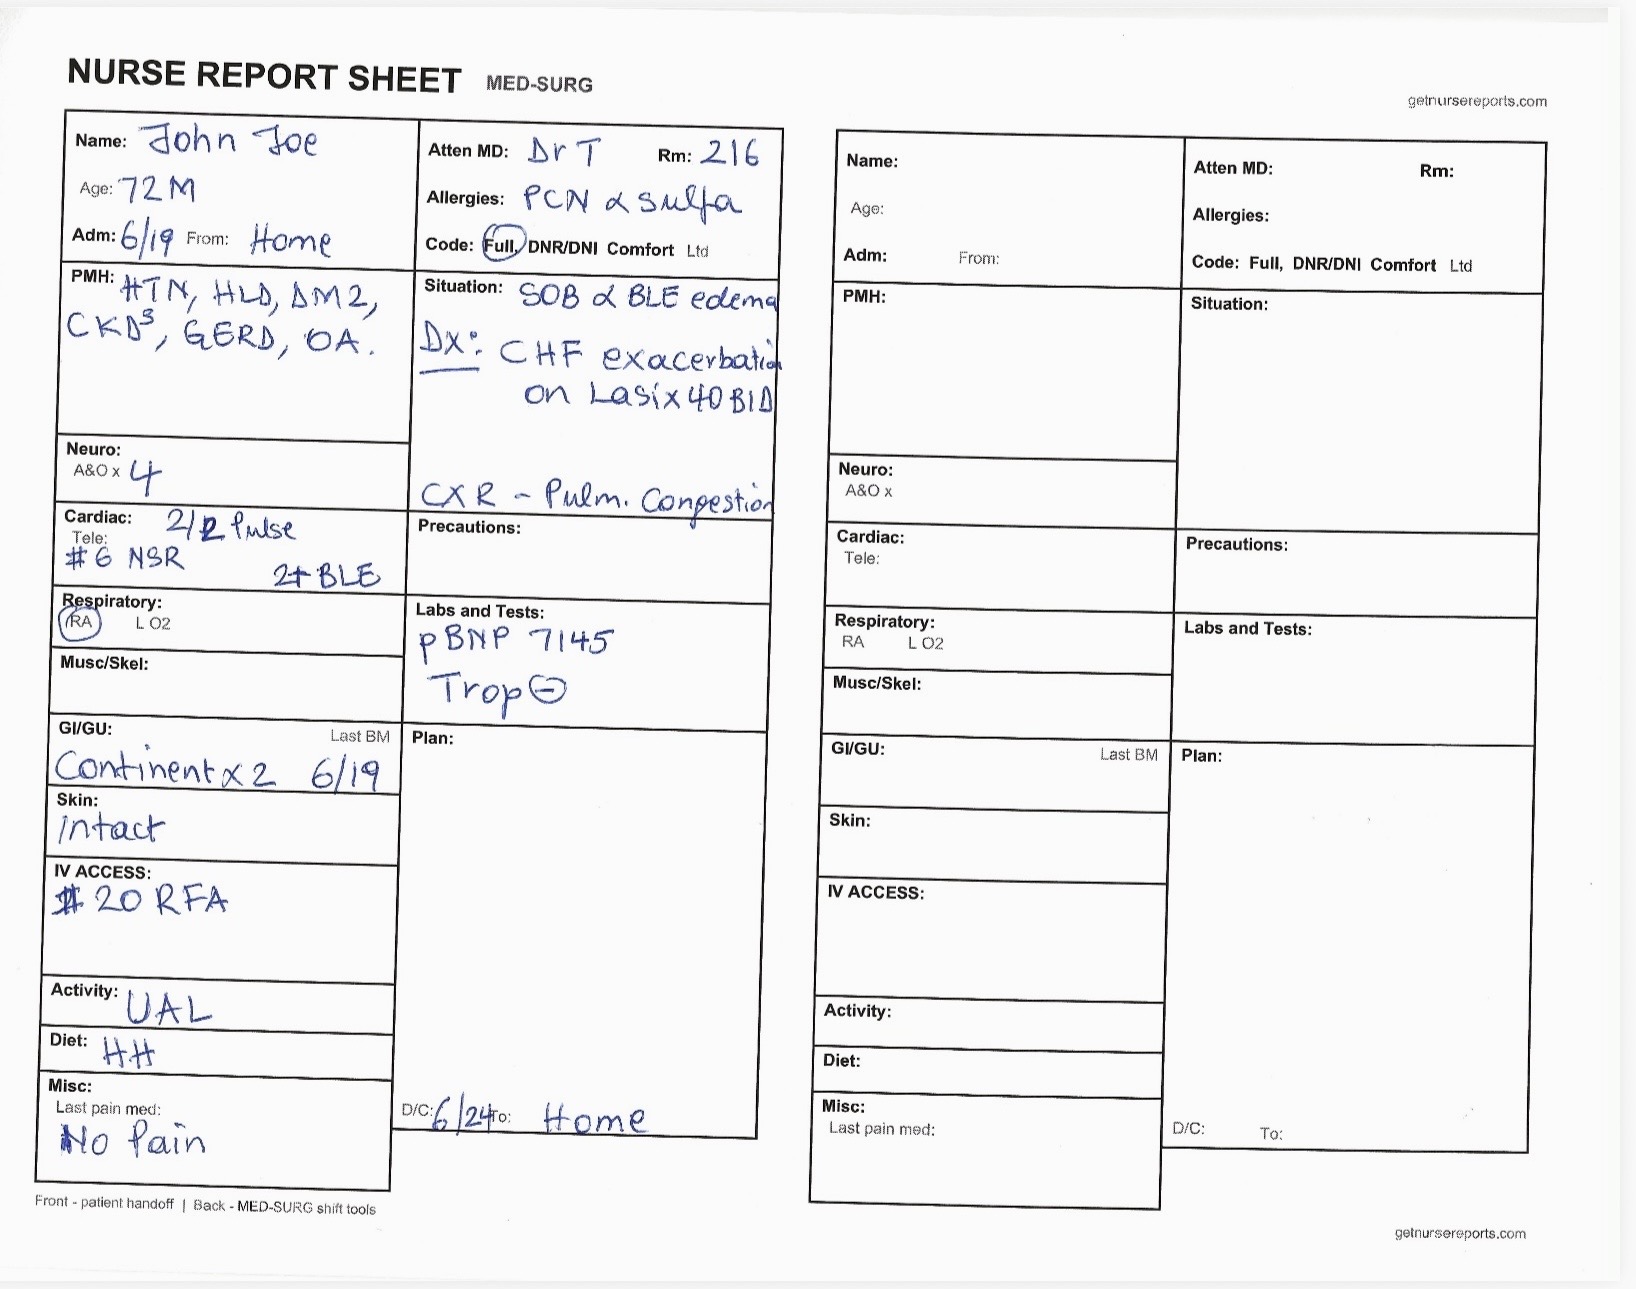 NURSE REPORT SHEET MED-SURG
getnursereports.com
Name: John Joe
Age: 72 M
Adm: 6/19 From: Home
Atten MD: Dr T Rm: 216
Allergies: PCN & sulfa
Code: Full, DNR/DNI Comfort Ltd
PMH: HTN, HLD, DM2,
CKD3, GERD, OA.
Situation: SOB & BLE edema
Dx: CHF exacerbation
on Lasix 40 BID
CXR - Pulm. Congestion
Neuro:
A&O x 4
Cardiac: 2/2 Pulse
Tele:
#6 NSR
2+ BLE
Precautions:
Respiratory:
RA L O2
Musc/Skel:
Labs and Tests:
pBNP 7145
Trop ⊖
GI/GU: Last BM
Continent x 2 6/19
Skin:
intact
IV ACCESS:
#20 RFA
Activity: UAL
Diet: HH
Misc:
Last pain med:
No Pain
Plan:
D/C: 6/24 To: Home
Front - patient handoff | Back - MED-SURG shift tools
Name:
Age:
Adm: From:
Atten MD: Rm:
Allergies:
Code: Full, DNR/DNI Comfort Ltd
PMH:
Situation:
Neuro:
A&O x
Cardiac:
Tele:
Precautions:
Respiratory:
RA L O2
Musc/Skel:
Labs and Tests:
GI/GU: Last BM
Skin:
IV ACCESS:
Activity:
Diet:
Misc:
Last pain med:
Plan:
D/C: To:
getnursereports.com